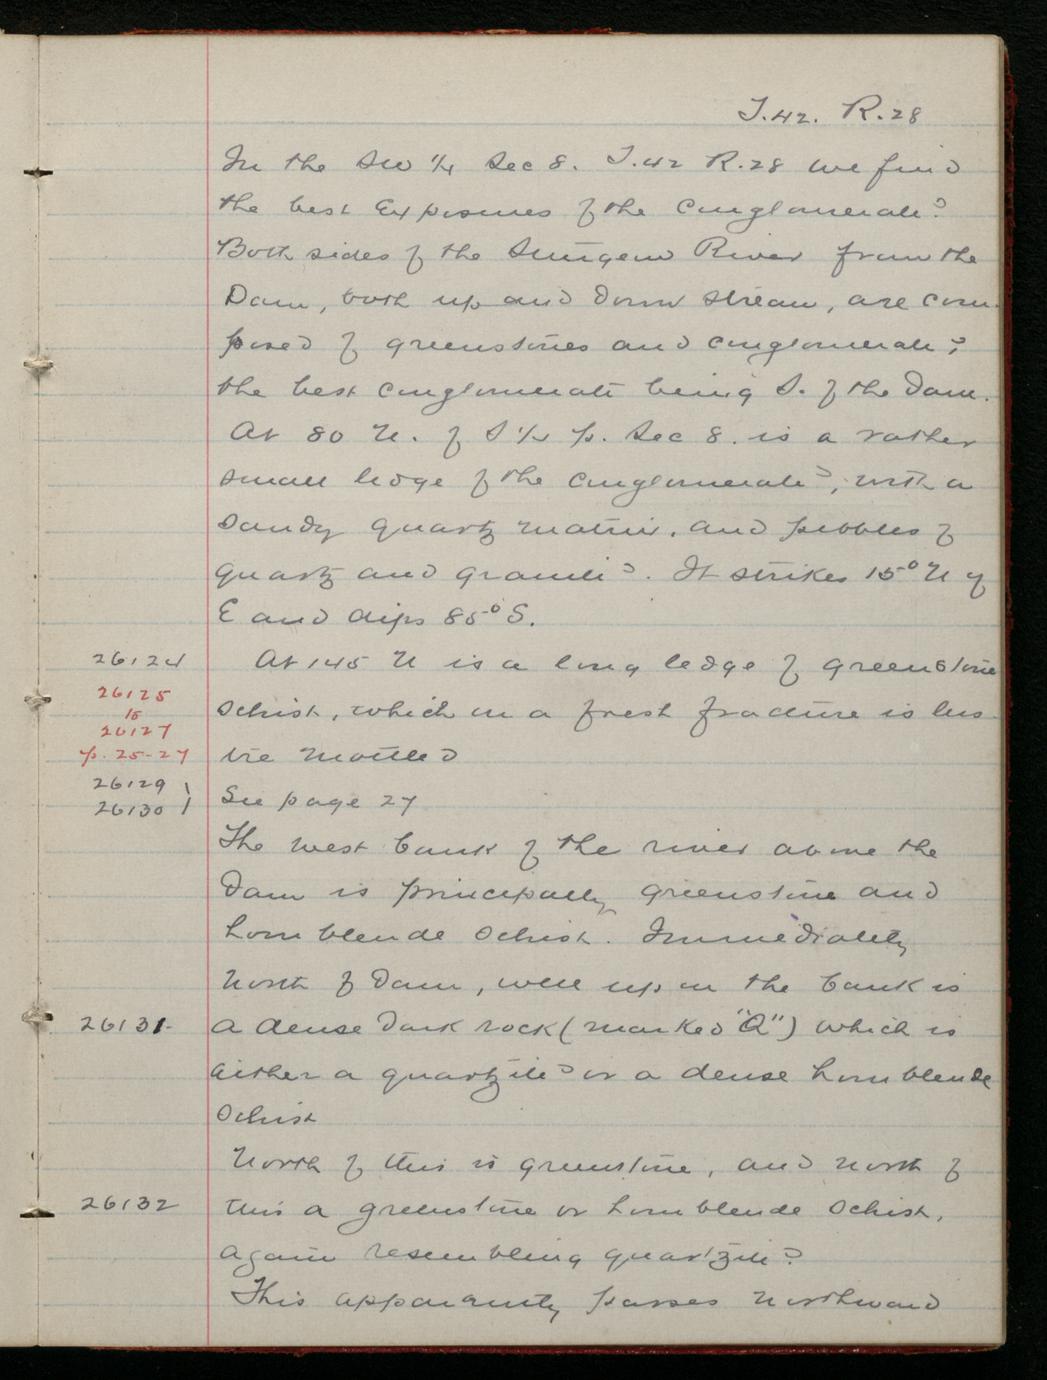 T.42. R.28
In the SW 1/4 Sec 8. T.42 R.28 we find
the best Exposures of the Conglomerate?
Both sides of the Sturgeon River from the
Dam, both up and down stream, are com-
posed of greenstones and conglomerate?
the best conglomerate being S. of the Dam.
At 80 N. of S 1/4 p. Sec 8. is a rather
small ledge of the conglomerate?, with a
sandy quartz matrix, and pebbles of
quartz and granite?. It strikes 15° N of
E and dips 85° S.
26124 At 145 N is a long ledge of greenstone
26125
to
26127
p. 25-27
schist, which on a fresh fracture is lus-
tre mottled
26129
26130
See page 27
The west bank of the river above the
Dam is principally greenstone and
hornblende schist. Immediately
North of Dam, well up on the bank is
26131 a dense dark rock (marked "Q") which is
either a quartzite? or a dense hornblende
schist
North of this is greenstone, and north of
26132 this a greenstone or hornblende schist,
again resembling quartzite?
This apparantly passes northward